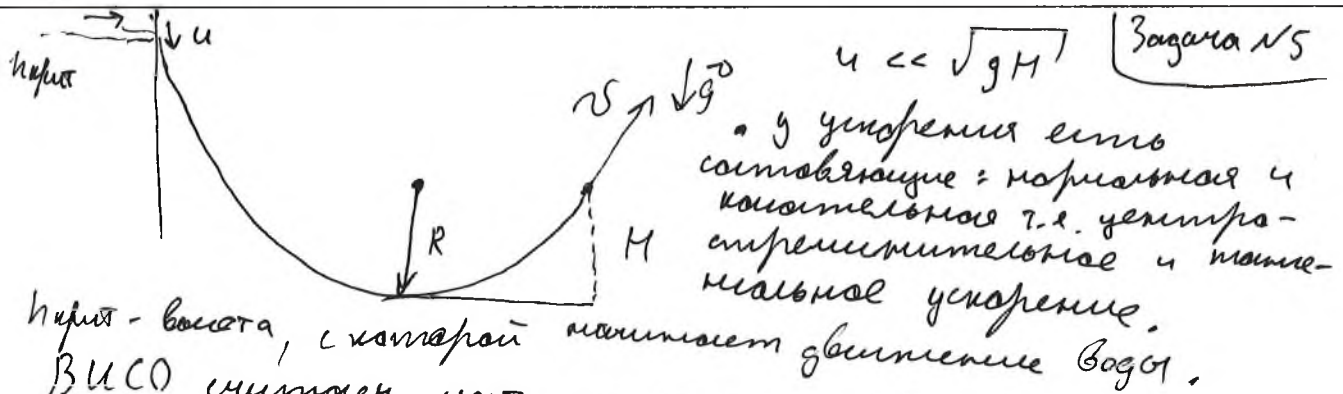 u
hкрит
u << √gH
Задача N5
υ
g
• у ускорения есть
состовяющие: нормальная и
R
касательная т.е. центро-
H
стремительное и танге-
нсальное ускорение.
hкрит - высота, с которой начинает движение вода.
ВИСО считаем